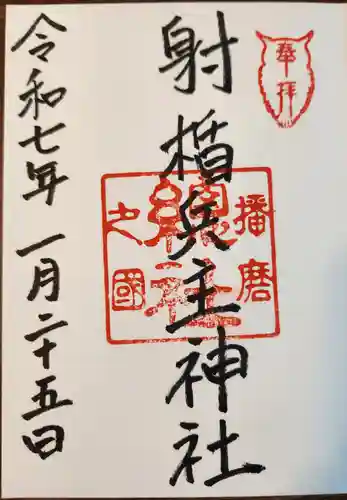 奉拝
射楯兵主神社
播磨
總社
之國
令和七年 一月二十五日